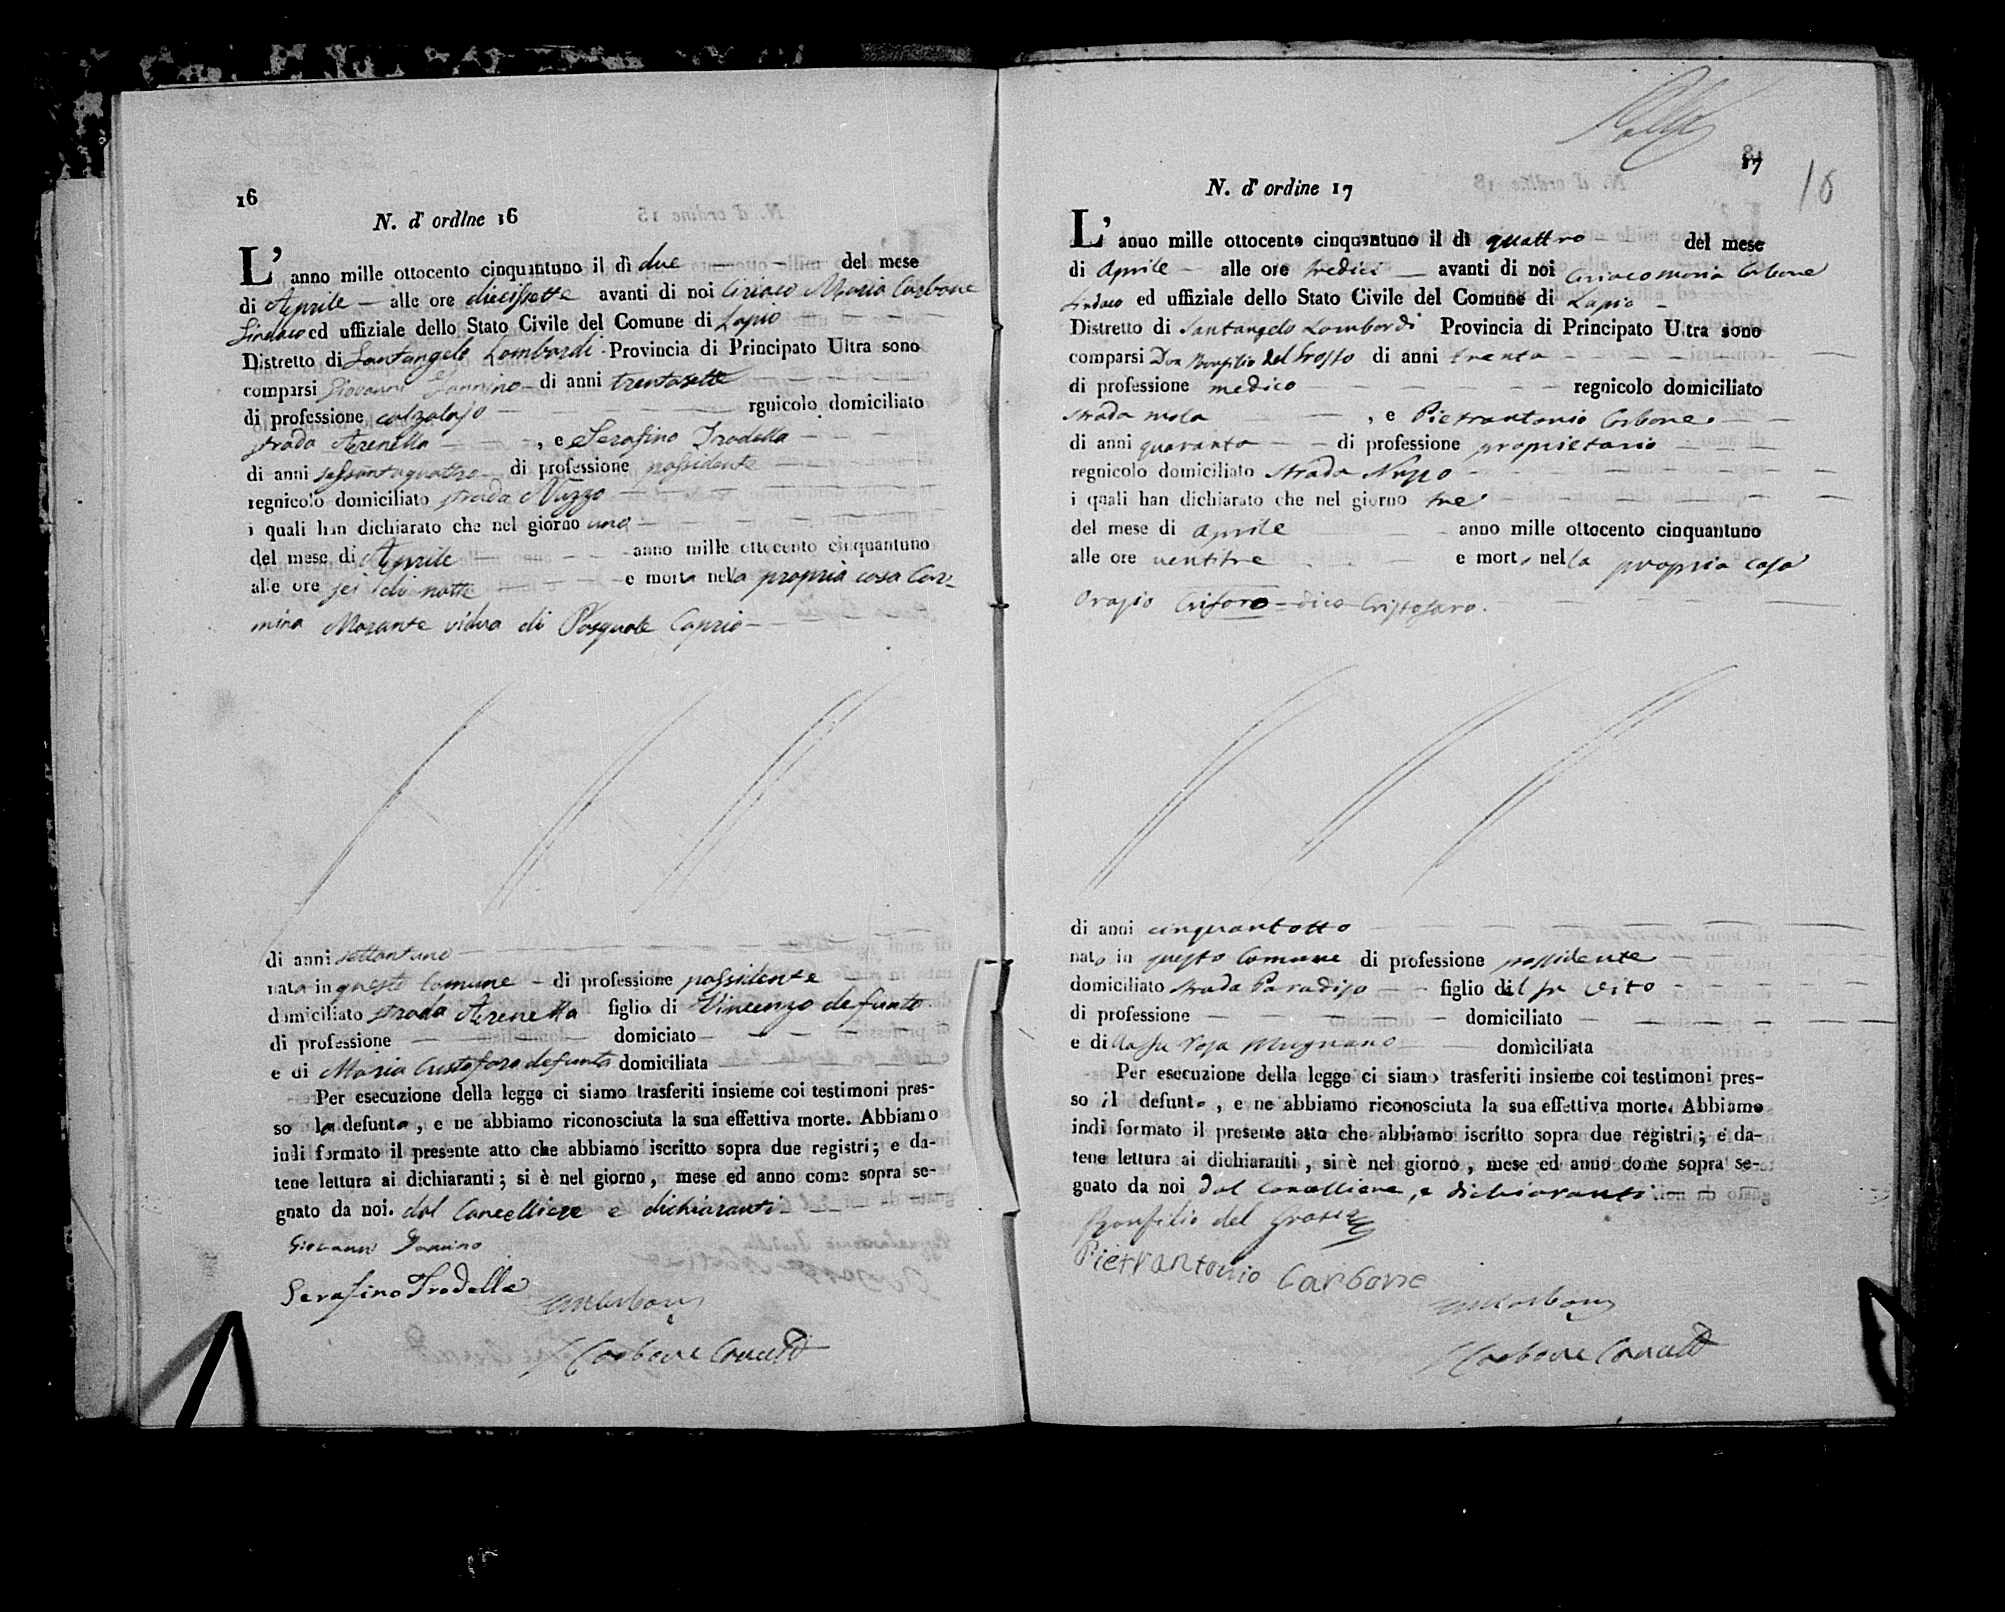 16
N. d' ordine 16
L' anno mille ottocento cinquantuno il dì due del mese
di Aprile alle ore diecissette avanti di noi Ciriaco Maria Carbone
Sindaco ed uffiziale dello Stato Civile del Comune di Lapio
Distretto di Santangelo Lombardi Provincia di Principato Ultra sono
comparsi Giovanni di anni trentasette
di professione calzolajo rgnicolo domiciliato
strada Arenella , e Serafino Trodella
di anni sessantaquattro di professione possidente
regnicolo domiciliato strada Nuzzo
i quali han dichiarato che nel giorno uno
del mese di Aprile anno mille ottocento cinquantuno
alle ore sei di notte e morta nella propria casa Car=
mina Morante vidua di Pasquale Caprio
di anni settantuno
nata in questo Comune di professione possidente
domiciliato strada Arenella figlio di Vincenzo defunto
di professione domiciato
e di Maria Cristoforo defunta domiciliata
Per esecuzione della legge ci siamo trasferiti insieme coi testimoni pres-
so la defunta, e ne abbiamo riconosciuta la sua effettiva morte. Abbiamo
indi formato il presente atto che abbiamo iscritto sopra due registri; e da-
tene lettura ai dichiaranti; si è nel giorno, mese ed anno come sopra se-
gnato da noi. dal Cancelliere e dichiaranti
Giovanni
Serafino Trodella
Carbone
17
18
N. d' ordine 17
L' anno mille ottocento cinquantuno il dì quattro del mese
di Aprile alle ore tredici avanti di noi Ciriaco Maria Carbone
Sindaco ed uffiziale dello Stato Civile del Comune di Lapio
Distretto di Santangelo Lombardi Provincia di Principato Ultra sono
comparsi Don Bonfilio del Grosso di anni trenta
di professione medico regnicolo domiciliato
strada mola , e Pietrantonio Carbone
di anni quaranta di professione proprietario
regnicolo domiciliato strada Nuzzo
i quali han dichiarato che nel giorno tre
del mese di Aprile anno mille ottocento cinquantuno
alle ore ventitre e morto nella propria casa
Orazio Criforo dico Cristofaro.
di anni cinquantotto
nato in questo Comune di professione possidente
domiciliato strada Paradiso figlio del fu Vito
di professione domiciliato
e di Rosa Mugnano domiciliata
Per esecuzione della legge ci siamo trasferiti insieme coi testimoni pres-
so il defunto, e ne abbiamo riconosciuta la sua effettiva morte. Abbiamo
indi formato il presente atto che abbiamo iscritto sopra due registri; e da-
tene lettura ai dichiaranti, si è nel giorno, mese ed anno come sopra se-
gnato da noi dal Cancelliere, e dichiaranti
Bonfilio del Grosso
Pietrantonio Carbone
Carbone